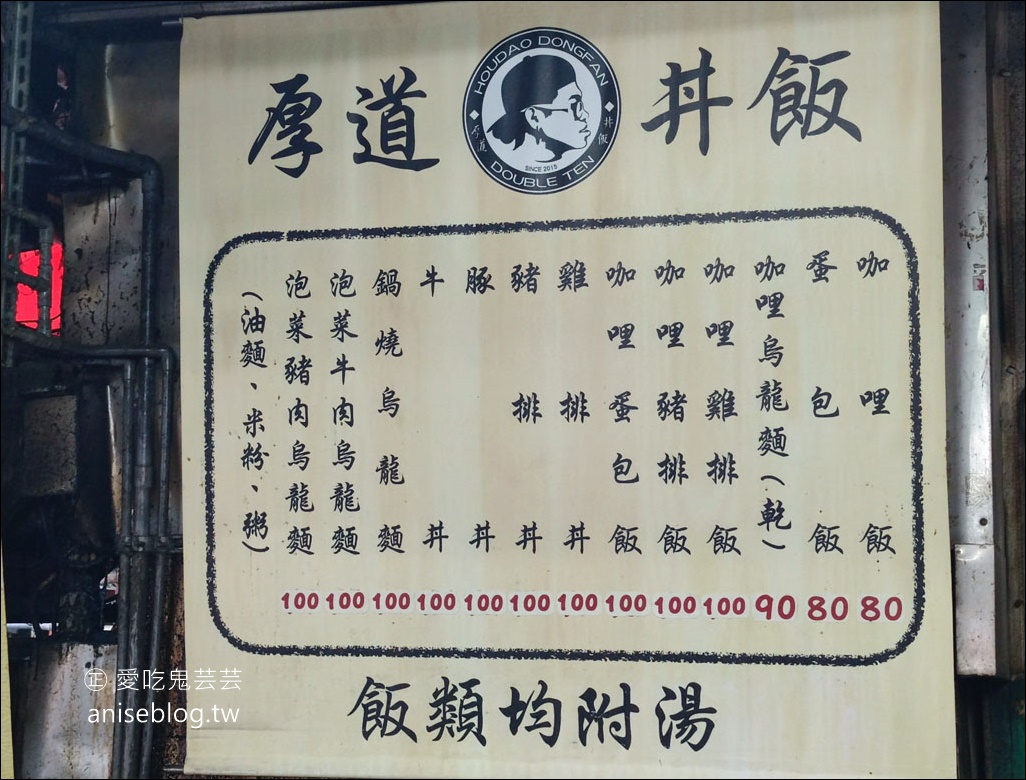 厚道 丼飯
HOUDAO DONGFAN
厚道 丼飯
SINCE 2015
DOUBLE TEN
咖哩飯 80
蛋包飯 80
咖哩烏龍麵(乾) 90
咖哩雞排飯 100
咖哩豬排飯 100
咖哩蛋包飯 100
雞排丼 100
豬排丼 100
豚丼 100
牛丼 100
鍋燒烏龍麵 100
泡菜牛肉烏龍麵 100
泡菜豬肉烏龍麵 100
(油麵、米粉、粥)
飯類均附湯
正 愛吃鬼芸芸
aniseblog.tw